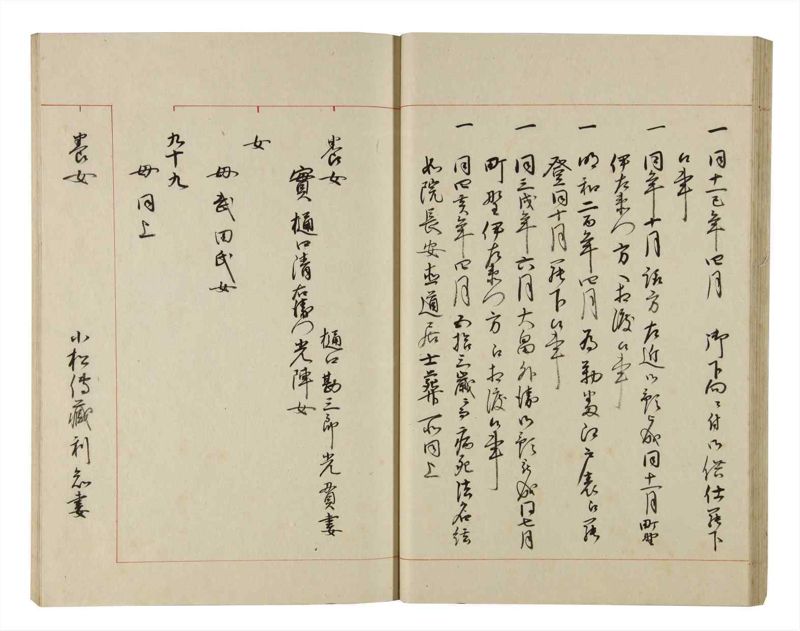 一同十一巳年四月 御下向ニ付御供仕罷下
候事
一同年十月諏方左近御預ニ成同十一月町野
伊左衛門方へ相渡候事
一明和二酉年四月為勤番江戸表江罷
登同十月罷下候事
一同三戌年六月大畠外衛御預ニ成同七月
町野伊左衛門方江相渡候事
一同四亥年四月五拾三歳ニ而病死法名
院長安直道居士葬所同上
養女
樋口勘三郎光貫妻
實樋口清右衛門光陣女
女
母武田氏女
九十九
母同上
養女
小松傳藏利忠妻